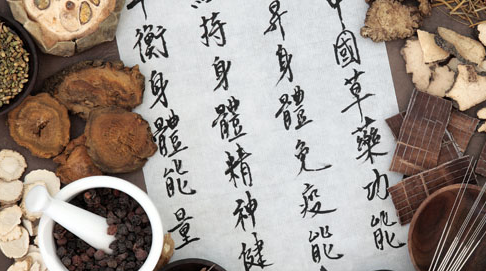 中國草藥功能
昇身體免疫能
持身體精神健
平衡身體能量